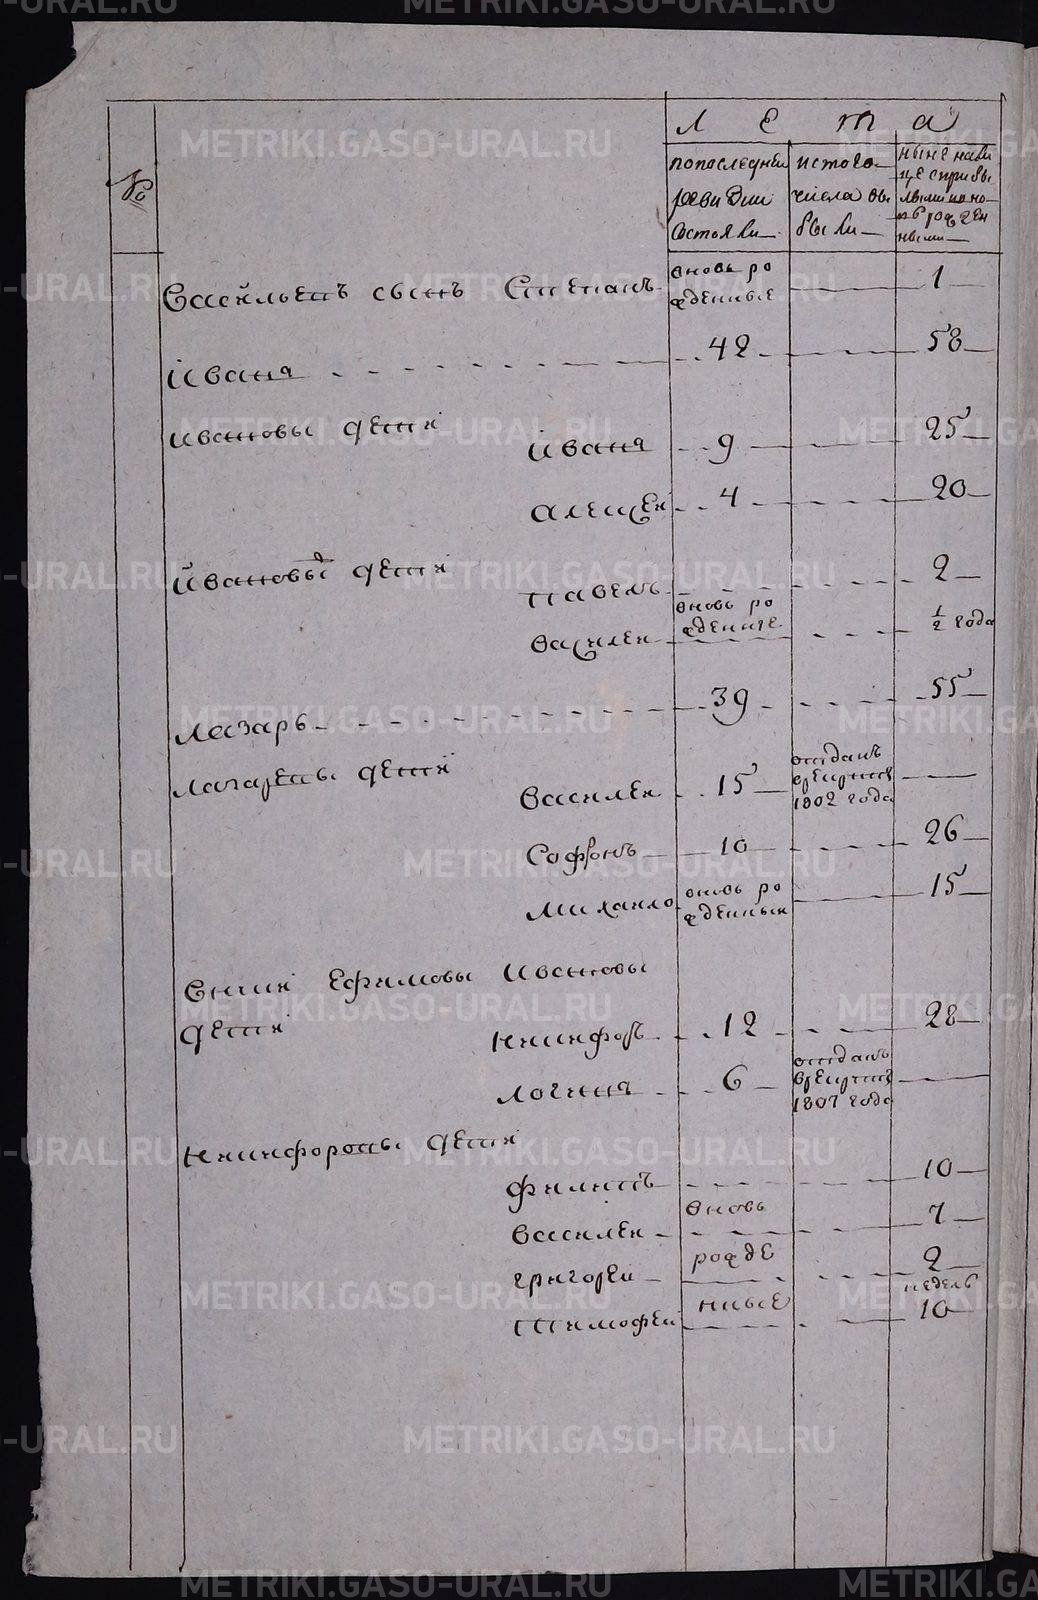 METRIKI.GASO-URAL.RU
№
Лета
по последней ревизии состояли
ис того числа выбыли
ныне на лице с прибылыми и новорожденными
Васильевъ сынъ Степанъ вновь рожденные 1
Иванъ 42 58
Ивановы дети
Иванъ 9 25
Алексей 4 20
Ивановы дети
Павелъ 2
Василей вновь рожденные 1/2 года
Лазарь 39 55
Лазаревы дети
Василей 15 отданъ врекруты 1802 года
Софонъ 10 26
Михайло вновь рожденный 15
Ефимовы Ивановы
дети Никифоръ 12 28
Логинъ 6 отданъ врекруты 1807 года
Никифоровы дети
Филипъ 10
Василей вновь 7
Григорей рожде 2
Тимофей нные недель 10